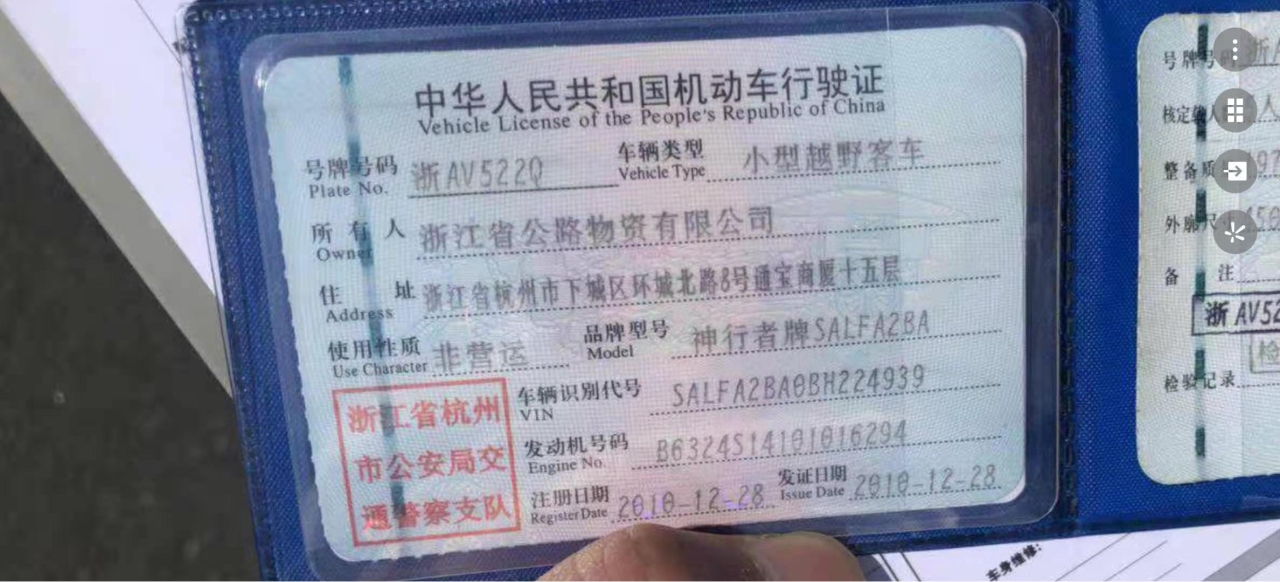 中华人民共和国机动车行驶证
Vehicle License of the People's Republic of China
号牌号码 浙AV522Q 车辆类型 小型越野客车
Plate No. Vehicle Type
所有人 浙江省公路物资有限公司
Owner
住址 浙江省杭州市下城区环城北路8号通宝商厦十五层
Address
使用性质 非营运 品牌型号 神行者牌SALFA2BA
Use Character Model
车辆识别代号 SALFA2BA0BH224939
VIN
发动机号码 B6324S14101016294
Engine No.
注册日期 2010-12-28 发证日期 2010-12-28
Register Date Issue Date
浙江省杭州
市公安局交
通警察支队
号牌号
核定
整备质
外廓尺
备注
浙AV52
检验记录
车身维修: